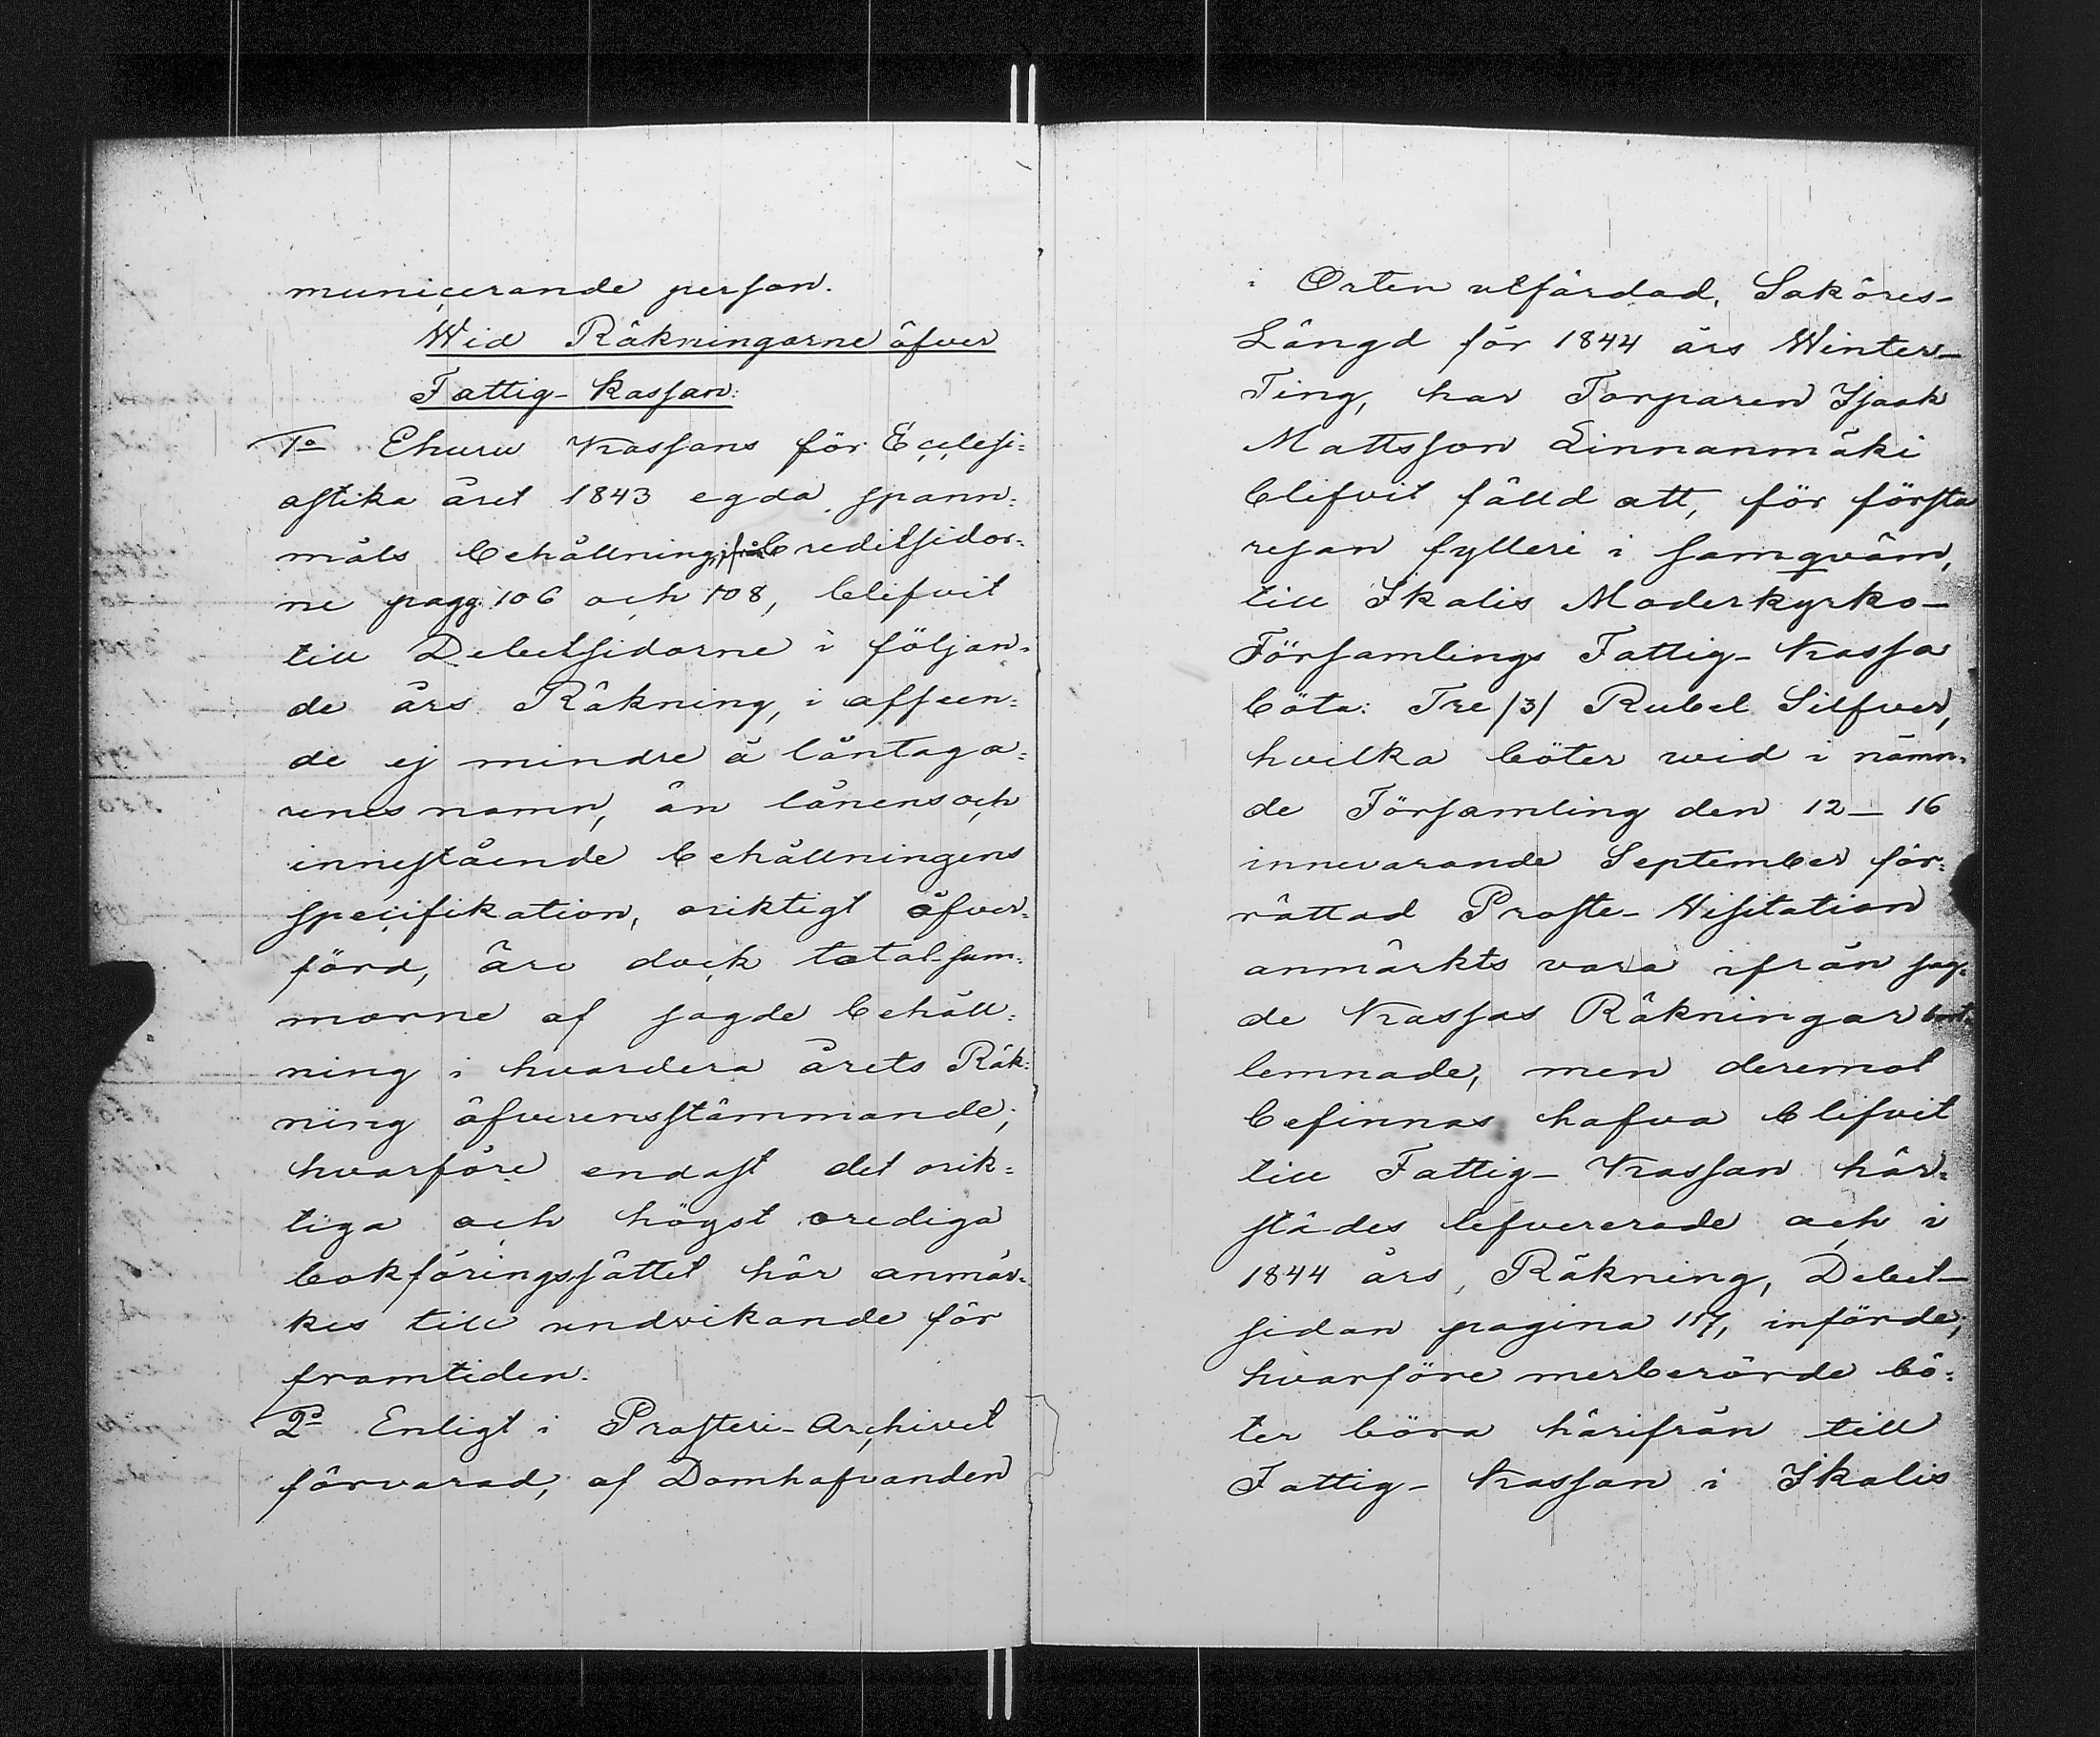 municerande person.
Wid Räkningarne öfver
Fattig-Kassan:
1o Ehuru Kassans för Ecclesi=
astika året 1843 egda spann=
måls behållning, ifrån Creditsidor=
ne pagg. 106 och 108, blifvit
till Debetsidorne i följan=
de års Räkning, i afseen=
de ej mindre å låntaga=
renes namn, än lånens och
innestående behållningens
specifikation, oriktigt öfver=
förd, äro dock total-sum=
morne af sagde behåll=
ning i hvardera årets Räk=
ning öfverensstämmande;
hvarföre endast det orik=
tiga och högst orediga
bokföringssättet här anmär=
kes till undvikande för
framtiden.
2o Enligt i Prosteri-Archivet
förvarad, af Domhafvanden
i Orten utfärdad, Saköres-
Längd för 1844 års Winter-
Ting, har Torparen Isaak
Mattsson Linnanmäki
blifvit fälld att, för första
resan fylleri i samqväm,
till Ikalis Moderkyrko-
Församlings Fattig-Kassa
böta: Tre /3/ Rubel Silfver,
hvilka böter wid i nämn=
de Församling den 12-16
innevarande September för=
rättad Proste-Visitation
anmärkts vara ifrån sag=
de Kassas Räkningar bort=
lemnade, men deremot
befinnas hafva blifvit
till Fattig-Kassan här=
städes lefvererade och i
1844 års Räkning, Debet-
sidan pagina, införde;
hvarföre merberörde bö=
ter böra härifrån till
Fattig-Kassan i Ikalis